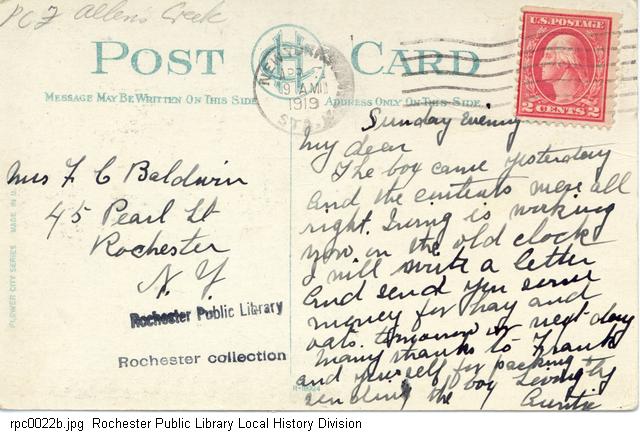 PCF Allens Creek
POST CARD
MESSAGE MAY BE WRITTEN ON THIS SIDE
ADDRESS ONLY ON THIS SIDE
NEW YORK
APR
9 AM
1919
STA.
U.S. POSTAGE
2 CENTS 2
Sunday Evening
My dear
The box came yesterday
and the contents were all
right. Irving is working
now on the old clock
I will write a letter
and send you some
money for hay and
oats. tomorrow or next day
Many thanks to Frank
and yourself for packing
sending the box Lovingly
Auntie
Mrs F C Baldwin
45 Pearl St
Rochester
N. Y.
Rochester Public Library
Rochester collection
FLOWER CITY SERIES MADE IN
rpc0022b.jpg Rochester Public Library Local History Division